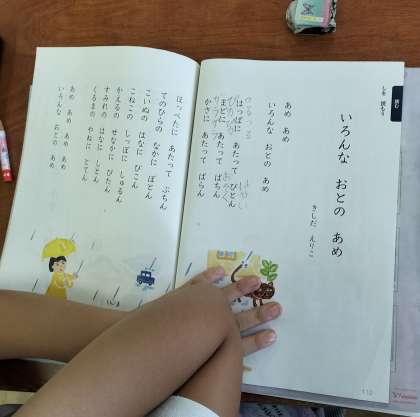 しを 読もう
読む
いろんな おとの あめ
きしだ えりこ
あめ あめ
いろんな おとの あめ
はっぱに あたって ぴとん
まどに あたって ぱちん
かさに あたって ぱらん
ほっぺたに あたって ぷちん
てのひらの なかに ぽとん
こいぬの はなに ぴこん
こねこの しっぽに しゅるん
かえるの せなかに ぴたん
すみれの はなに しとん
くるまの やねに とてん
あめ あめ あめ あめ
いろんな おとの あめ